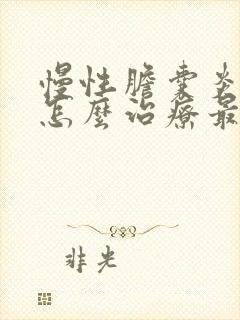 慢性膽囊炎
怎麼治療最
非光